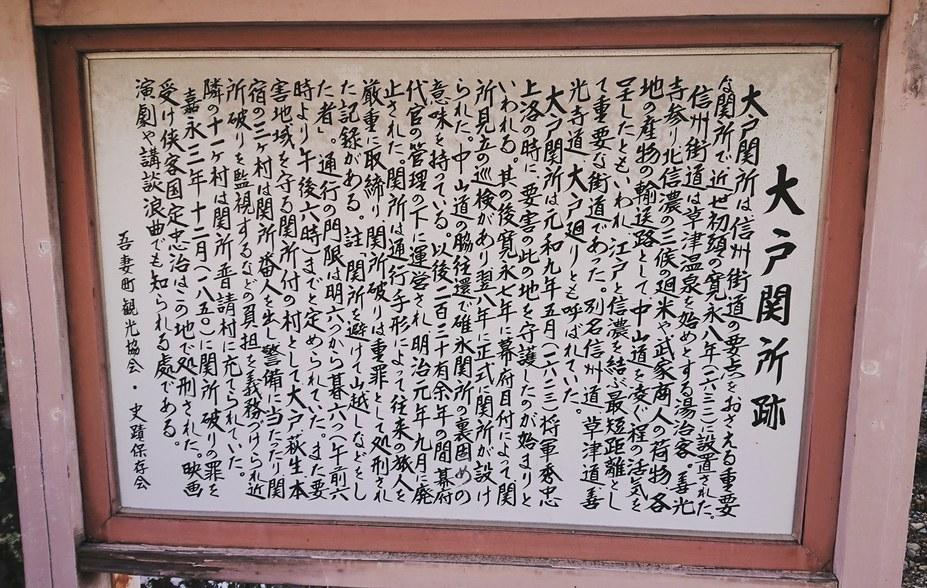 大戸関所跡
大戸関所は信州街道の要点をおさえる重要
な関所で近世初頭の寛永八年(一六三一)に設置された。
信州街道は草津温泉を始めとする湯治客・善光
寺参り・北信濃の三候の廻米や武家商人の荷物各
地の産物の輸送路として中山道を凌ぐ程の活気を
呈したともいわれ江戸と信濃を結ぶ最短距離とし
て重要な街道であった。別名信州道草津道善
光寺道大戸廻りとも呼ばれていた。
大戸関所は元和九年五月(一六二三)将軍秀忠
上洛の時に要害の此の地を守護したのが始まりと
いわれる。其の後寛永七年に幕府目付によって関
所見立の巡検があり翌八年に正式に関所が設け
られた。中山道の脇往還で碓氷関所の裏固めの
意味を持っている。以後二百三十有余年の間幕府
代官の管理の下に運営され明治元年九月に廃
止された。関所は通行手形によって往来の旅人を
厳重に取締り関所破りは重罪として処刑され
た記録がある。註 関所を避けて山越しなどをし
た者」通行の門限は明六つから暮六つ(午前六
時より午後六時)までと定められていた。また要
害地域を守る関所付の村として大戸萩生本
宿の三ヶ村は関所番人を出し警備に当たったり関
所破りを監視するなどの負担を義務づけられ近
隣の十一ヶ村は関所普請村に充てられていた。
嘉永三年十二月(一八五〇)に関所破りの罪を
受け侠客国定忠治はこの地で処刑された。映画
演劇や講談浪曲でも知られる処である。
吾妻町観光協会・史蹟保存会